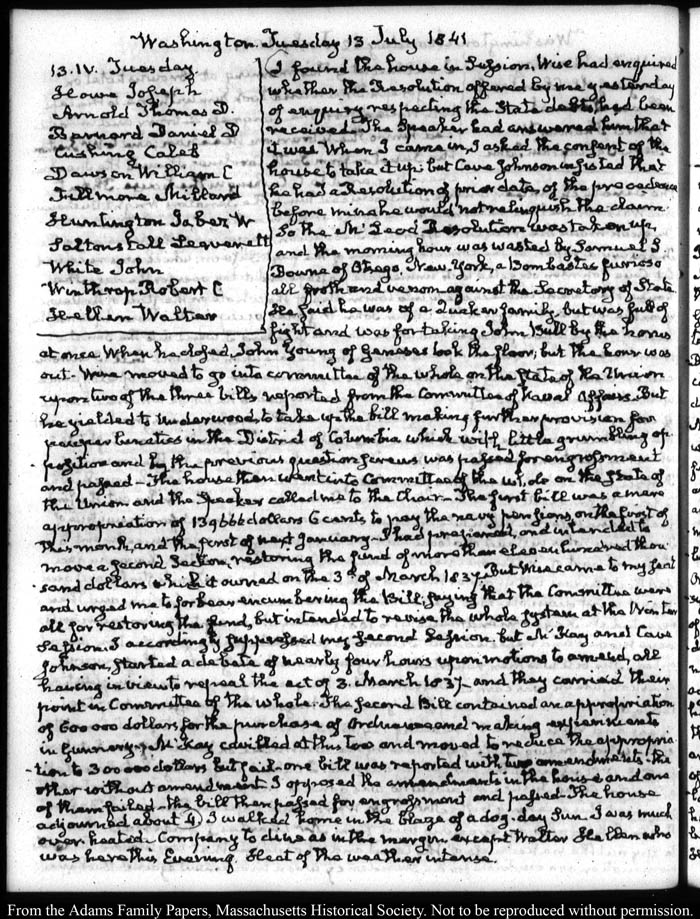 Washington. Tuesday 13 July 1841
13. IV. Tuesday
Howe Joseph
Arnold Thomas D.
Barnard Daniel D
Cushing Caleb
Dawson William C
Fillmore Millard
Huntington Jabez W
Saltonstall Leverett
White John
Winthrop Robert C
Hellen Walter
I found the house in Session. Wise had enquired
whether the Resolution offered by me yesterday
of enquiry respecting the State debts, had been
received. The Speaker had answered him that
it was. When I came in, I asked the consent of the
house to take it up; but Cave Johnson insisted that
he had a Resolution of prior date, of the precedence
before mine he would not relinquish the claim.
So the McLeod Resolution was taken up,
and the morning hour was wasted by Samuel S.
Bowne of Otsego, New York, a Bombastes furioso
all froth and venom against the Secretary of State
He said he was of a Quaker family, but was full of
fight and was for taking John Bull by the horns
at once. When he closed, John Young of Genesee took the floor, but the hour was
out. Wise moved to go into committee of the whole on the State of the Union
upon two of the three bills reported from the Committee of Naval Affairs. But
he yielded to Underwood, to take up the bill making further provision for
pauper lunatics in the District of Columbia which with little grumbling op-
position and by the previous question screws was passed for engrossment
and passed. The house then went into Committee of the whole on the State of
the Union and the Speaker called me to the Chair. The first bill was a mere
appropriation of 139666 dollars 6 cents to pay the navy pensions on the first of
this month, and the first of next January. I had prepared, and intended to
move a second Section, restoring the fund of more than eleven hundred thou-
sand dollars which it owned on the 3d. of March 1837. But Wise came to my seat
and urged me to forbear encumbering the Bill, saying that the Committee were
all for restoring the fund, but intended to revise the whole system at the Winter
Session. I accordingly suppressed my second Session. but McKay and Cave
Johnson, started a debate of nearly four hours upon motions to amend, all
having in view to repeal the act of 3. March 1837 and they carried their
point in Committee of the whole. The second Bill contained an appropriation
of 600 000 dollars for the purchase of Ordnance and making experiments
in gunnery. McKay cavilled at this too and moved to reduce the appropria-
tion to 300 000 dollars but fail. one bill was reported with two amendments the
other without amendment I opposed the amendments in the house and one
of them failed. the bill then passed for engrossment and passed. The house
adjourned about 4) I walked home in the blaze of a dog-day Sun. I was much
over heated. Company to dine as in the margin except Walter Hellen who
was here this Evening. Heat of the weather intense.
From the Adams Family Papers, Massachusetts Historical Society. Not to be reproduced without permission.